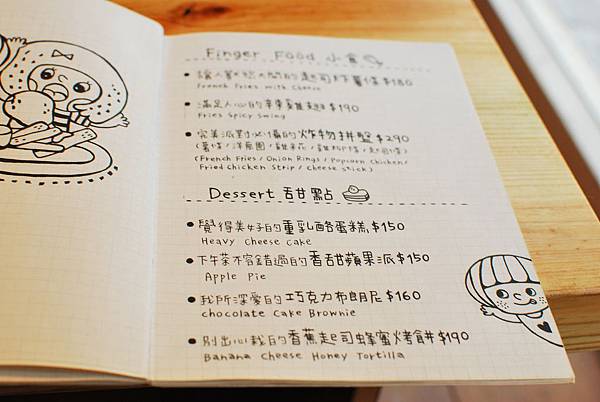 Finger Food 小食
讓人歡恣大開的起司炸薯條 $180
French Fries with Cheese
滿足人心的辣辣雞翅 $190
Fries Spicy Swing
完美派對必備的炸物拼盤 $290
(薯條/洋蔥圈/雞米花/雞柳條/起司條)
(French Fries/Onion Rings/Popcorn Chicken/
Fried Chicken Strip/Cheese stick)
Dessert 甜點
覺得美好的重乳酪蛋糕 $150
Heavy Cheese Cake
下午茶不容錯過的香甜蘋果派 $150
Apple Pie
我所深愛的巧克力布朗尼 $160
chocolate Cake Brownie
別出心栽的香蕉起司蜂蜜烤餅 $190
Banana Cheese Honey Tortilla